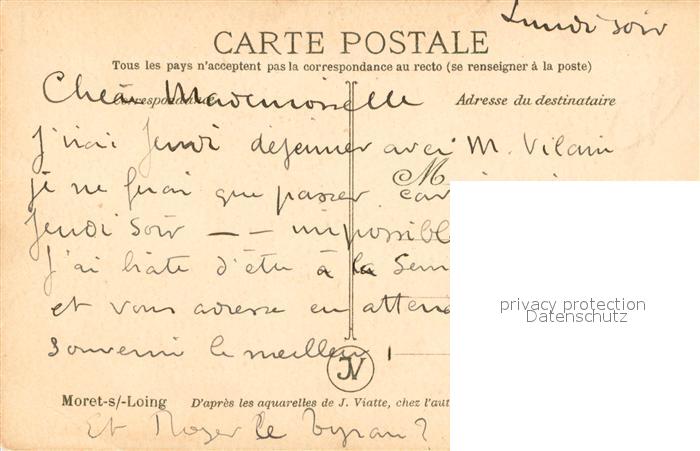 Lundi soir
CARTE POSTALE
Tous les pays n'acceptent pas la correspondance au recto (se renseigner à la poste)
Correspondance
Adresse du destinataire
Chère Mademoiselle
J'irai Jeudi déjeuner avec M. Vilain
M
je ne ferai que passer car
Jeudi soir — — impossibl
J'ai hâte d'être à la Sem
et vous adresse en attend
souvenir le meilleur
JV
Moret-s/-Loing D'après les aquarelles de J. Viatte, chez l'aut
Et Roger le tyran ?
privacy protection
Datenschutz